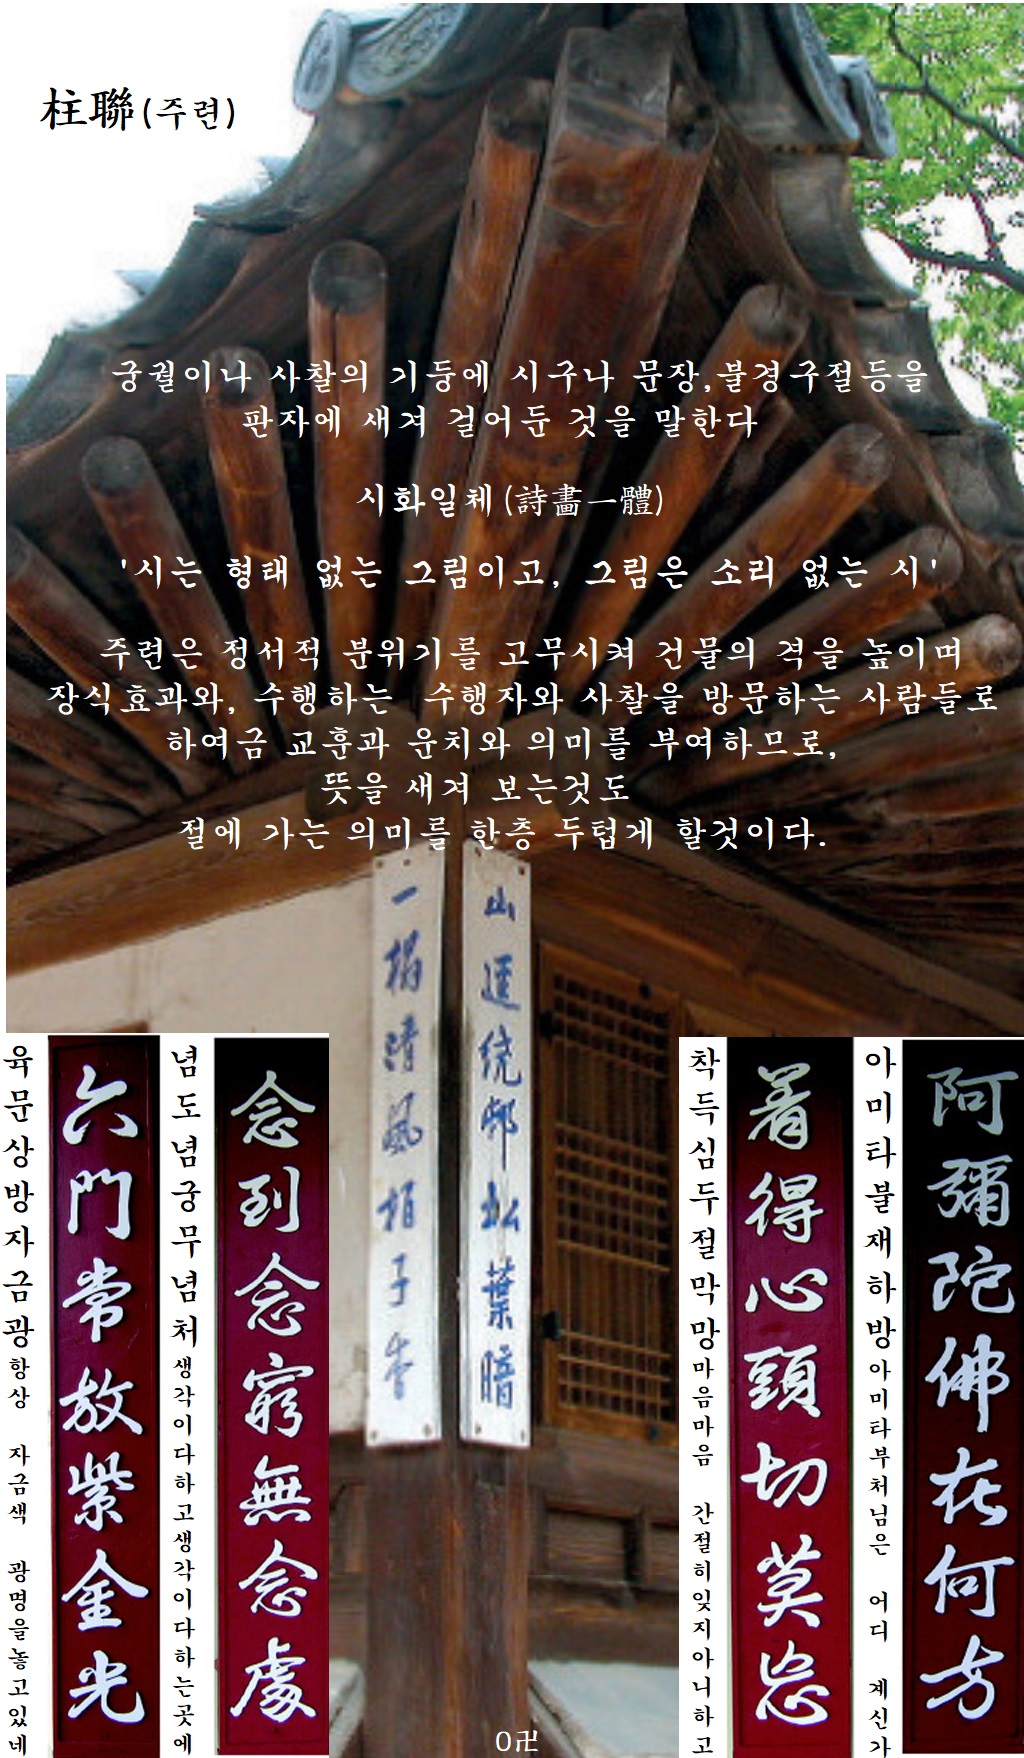 柱聯(주련)
궁궐이나 사찰의 기둥에 시구나 문장,불경구절등을
판자에 새겨 걸어둔 것을 말한다
시화일체(詩畵一體)
'시는 형태 없는 그림이고, 그림은 소리 없는 시'
주련은 정서적 분위기를 고무시켜 건물의 격을 높이며
장식효과와, 수행하는 수행자와 사찰을 방문하는 사람들로
하여금 교훈과 운치와 의미를 부여하므로,
뜻을 새겨 보는것도
절에 가는 의미를 한층 두텁게 할것이다.
阿彌陀佛在何方
아미타불재하방아미타부처님은 어디 계신가
着得心頭切莫忘
착득심두절막망마음마음 간절히잊지아니하고
山逕繞邨松葉暗
一榻清風柏子香
念到念窮無念處
념도념궁무념처생각이다하고생각이다하는곳에
六門常放紫金光
육문상방자금광항상 자금색 광명을놓고있네
O卍